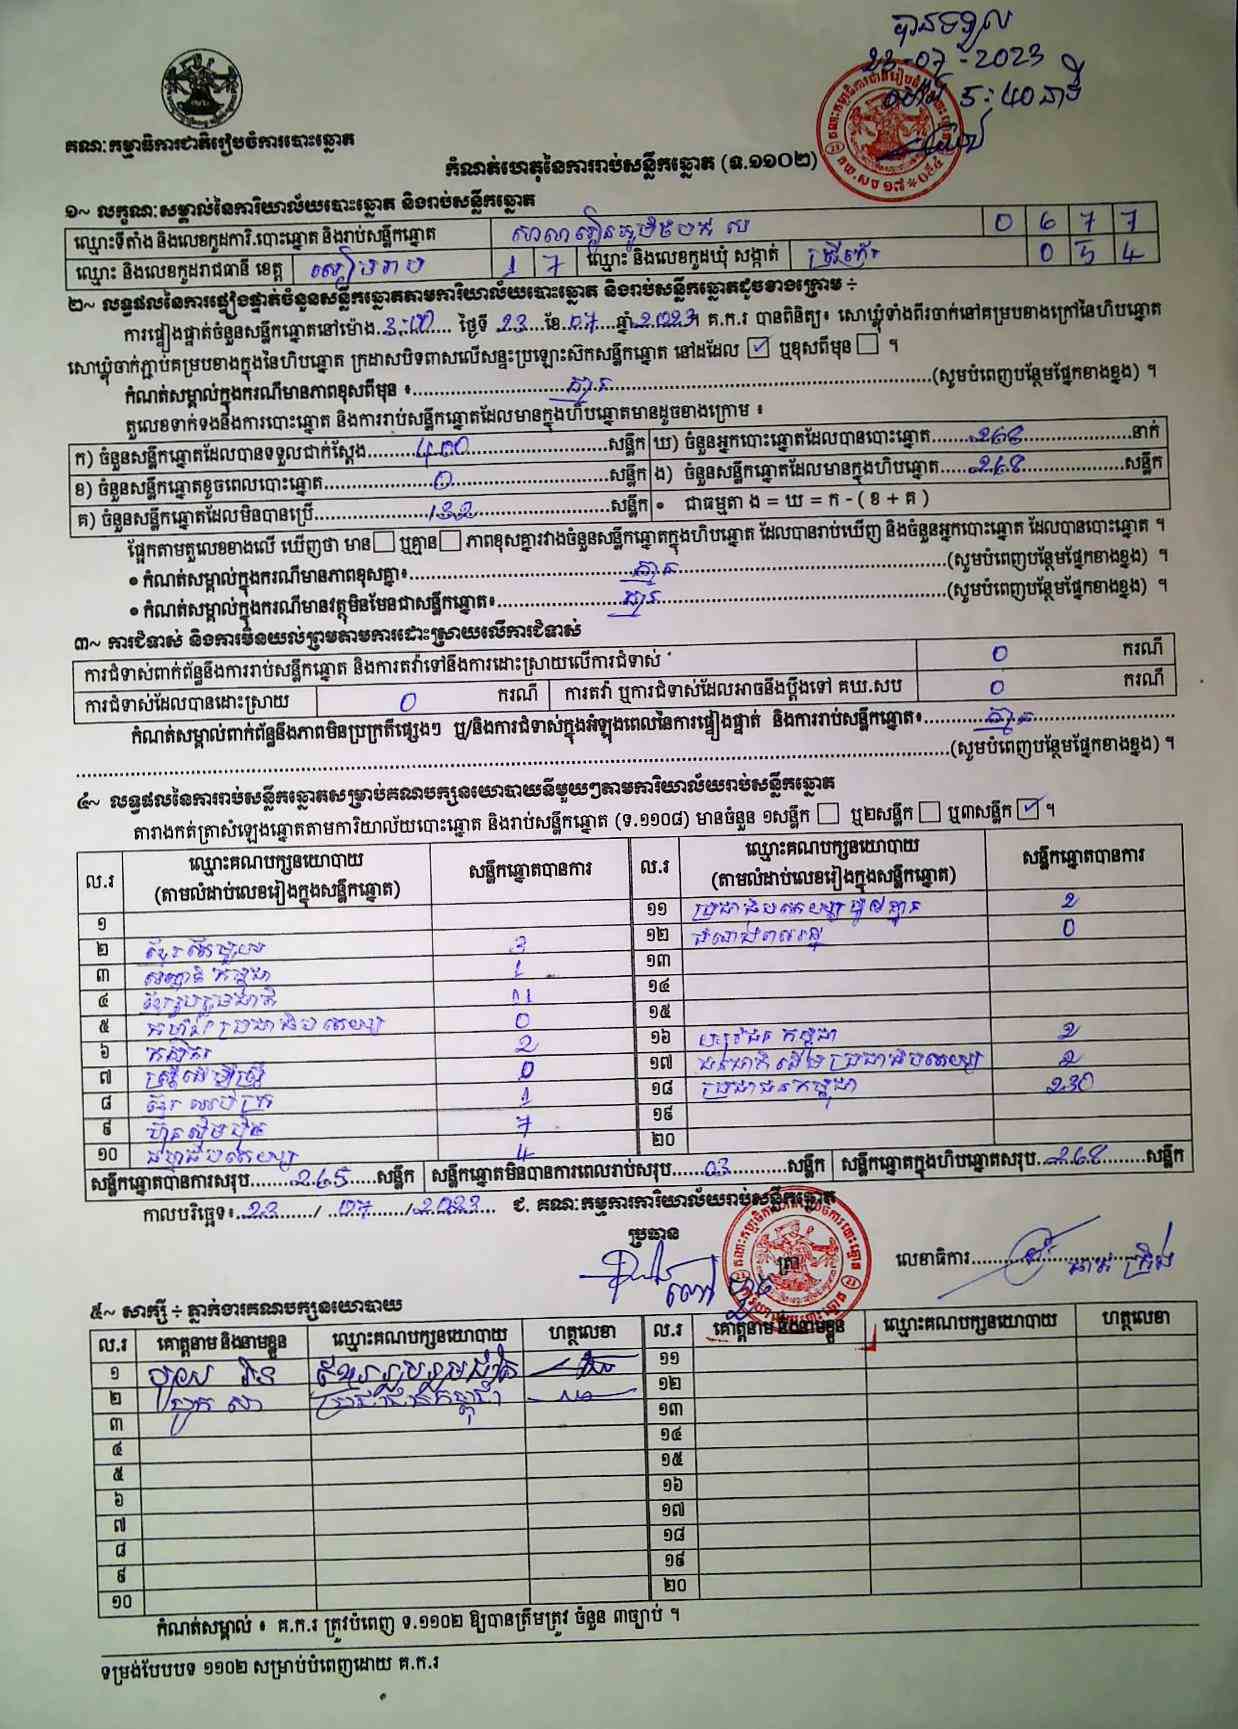 បានទទួល
23-07-2023
ម៉ោង 5:40នាទី
គណៈកម្មាធិការជាតិរៀបចំការបោះឆ្នោត
កំណត់ហេតុនៃការរាប់សន្លឹកឆ្នោត (ទ.១១០២)
១~ លក្ខណៈសម្គាល់នៃការិយាល័យបោះឆ្នោត និងរាប់សន្លឹកឆ្នោត
ឈ្មោះទីតាំង និងលេខកូដការិ.បោះឆ្នោត និងរាប់សន្លឹកឆ្នោត សាលារៀនភូមិ 0 6 7 7
ឈ្មោះ និងលេខកូដរាជធានី ខេត្ត សៀមរាប 1 7 ឈ្មោះ និងលេខកូដឃុំ សង្កាត់ 0 5 4
២~ លទ្ធផលនៃការផ្ទៀងផ្ទាត់ចំនួនសន្លឹកឆ្នោតតាមការិយាល័យបោះឆ្នោត និងរាប់សន្លឹកឆ្នោតដូចខាងក្រោម ÷
ការផ្ទៀងផ្ទាត់ចំនួនសន្លឹកឆ្នោតនៅម៉ោង 3:00 ថ្ងៃទី 23 ខែ 07 ឆ្នាំ 2023 ។ គ.ក.រ បានពិនិត្យ៖ សោឃ្លុំទាំងពីរចាក់នៅគម្របខាងក្រៅនៃហិបឆ្នោត
សោឃ្លុំចាក់ភ្ជាប់គម្របខាងក្នុងនៃហិបឆ្នោត ក្រដាសបិទពាសលើសន្ទះប្រឡោះស៊កសន្លឹកឆ្នោត នៅដដែល ☑ ឬខុសពីមុន ☐ ។
កំណត់សម្គាល់ក្នុងករណីមានភាពខុសពីមុន ៖ គ្មាន (សូមបំពេញបន្ថែមផ្នែកខាងខ្នង) ។
តួលេខទាក់ទងនឹងការបោះឆ្នោត និងការរាប់សន្លឹកឆ្នោតដែលមានក្នុងហិបឆ្នោតមានដូចខាងក្រោម ៖
ក) ចំនួនសន្លឹកឆ្នោតដែលបានទទួលជាក់ស្ដែង 400 សន្លឹក ឃ) ចំនួនអ្នកបោះឆ្នោតដែលបានបោះឆ្នោត 268 នាក់
ខ) ចំនួនសន្លឹកឆ្នោតខូចពេលបោះឆ្នោត 0 សន្លឹក ង) ចំនួនសន្លឹកឆ្នោតដែលមានក្នុងហិបឆ្នោត 268 សន្លឹក
គ) ចំនួនសន្លឹកឆ្នោតដែលមិនបានប្រើ 132 សន្លឹក • ជាធម្មតា ង = ឃ = ក - ( ខ + គ )
ផ្អែកតាមតួលេខខាងលើ ឃើញថា មាន ☐ ឬគ្មាន ☐ ភាពខុសគ្នារវាងចំនួនសន្លឹកឆ្នោតក្នុងហិបឆ្នោត ដែលបានរាប់ឃើញ និងចំនួនអ្នកបោះឆ្នោត ដែលបានបោះឆ្នោត ។
• កំណត់សម្គាល់ក្នុងករណីមានភាពខុសគ្នា៖ គ្មាន (សូមបំពេញបន្ថែមផ្នែកខាងខ្នង) ។
• កំណត់សម្គាល់ក្នុងករណីមានវត្ថុមិនមែនជាសន្លឹកឆ្នោត៖ គ្មាន (សូមបំពេញបន្ថែមផ្នែកខាងខ្នង) ។
៣~ ការជំទាស់ និងការមិនយល់ព្រមតាមការដោះស្រាយលើការជំទាស់
ការជំទាស់ពាក់ព័ន្ធនឹងការរាប់សន្លឹកឆ្នោត និងការតវ៉ាទៅនឹងការដោះស្រាយលើការជំទាស់ 0 ករណី
ការជំទាស់ដែលបានដោះស្រាយ 0 ករណី ការតវ៉ា ឬការជំទាស់ដែលអាចនឹងប្ដឹងទៅ គឃ.សប 0 ករណី
កំណត់សម្គាល់ពាក់ព័ន្ធនឹងភាពមិនប្រក្រតីផ្សេងៗ ឬ/និងការជំទាស់ក្នុងអំឡុងពេលនៃការផ្ទៀងផ្ទាត់ និងការរាប់សន្លឹកឆ្នោត៖ គ្មាន
(សូមបំពេញបន្ថែមផ្នែកខាងខ្នង) ។
៤~ លទ្ធផលនៃការរាប់សន្លឹកឆ្នោតសម្រាប់គណបក្សនយោបាយនីមួយៗតាមការិយាល័យរាប់សន្លឹកឆ្នោត
តារាងកត់ត្រាសំឡេងឆ្នោតតាមការិយាល័យបោះឆ្នោត និងរាប់សន្លឹកឆ្នោត (ទ.១១០៨) មានចំនួន ១សន្លឹក ☐ ឬ២សន្លឹក ☐ ឬ៣សន្លឹក ☑ ។
ល.រ ឈ្មោះគណបក្សនយោបាយ (តាមលំដាប់លេខរៀងក្នុងសន្លឹកឆ្នោត) សន្លឹកឆ្នោតបានការ ល.រ ឈ្មោះគណបក្សនយោបាយ (តាមលំដាប់លេខរៀងក្នុងសន្លឹកឆ្នោត) សន្លឹកឆ្នោតបានការ
១ ១១ ប្រជាធិបតេយ្យមូលដ្ឋាន 2
២ 3 ១២ 0
៣ កម្ពុជា 1 ១៣
៤ ខ្មែររួបរួមជាតិ 11 ១៤
៥ ប្រជាធិបតេយ្យ 0 ១៥
៦ កសិករ 2 ១៦ យុវជនកម្ពុជា 2
៧ ស្ត្រីដើម្បីស្ត្រី 0 ១៧ ជនជាតិដើមប្រជាធិបតេយ្យ 2
៨ ខ្មែរ 1 ១៨ ប្រជាជនកម្ពុជា 230
៩ ហ៊្វុនស៊ិនប៉ិច 7 ១៩
១០ ធម្មាធិបតេយ្យ 4 ២០
សន្លឹកឆ្នោតបានការសរុប 265 សន្លឹក សន្លឹកឆ្នោតមិនបានការពេលរាប់សរុប 03 សន្លឹក សន្លឹកឆ្នោតក្នុងហិបឆ្នោតសរុប 268 សន្លឹក
កាលបរិច្ឆេទ៖ 23 / 07 / 2023 ជ. គណៈកម្មការការិយាល័យរាប់សន្លឹកឆ្នោត
ប្រធាន ត្រា លេខាធិការ
៥~ សាក្សី ÷ ភ្នាក់ងារគណបក្សនយោបាយ
ល.រ គោត្តនាម និងនាមខ្លួន ឈ្មោះគណបក្សនយោបាយ ហត្ថលេខា ល.រ គោត្តនាម និងនាមខ្លួន ឈ្មោះគណបក្សនយោបាយ ហត្ថលេខា
១ ខ្មែររួបរួមជាតិ ១១
២ ប្រជាជនកម្ពុជា ១២
៣ ១៣
៤ ១៤
៥ ១៥
៦ ១៦
៧ ១៧
៨ ១៨
៩ ១៩
១០ ២០
កំណត់សម្គាល់ ៖ គ.ក.រ ត្រូវបំពេញ ទ.១១០២ ឱ្យបានត្រឹមត្រូវ ចំនួន ៣ច្បាប់ ។
ទម្រង់បែបបទ ១១០២ សម្រាប់បំពេញដោយ គ.ក.រ